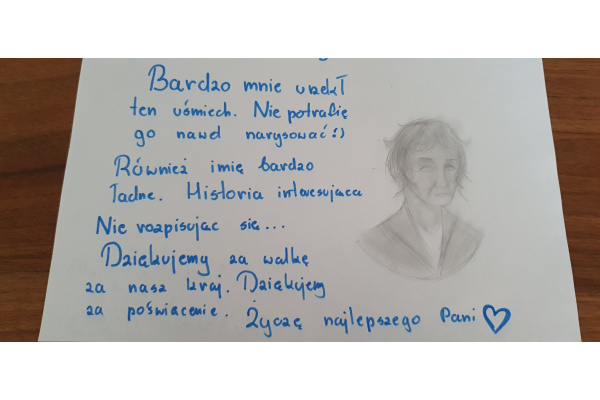 Bardzo mnie urzekł
ten uśmiech. Nie potrafię
go nawet narysować :)
Również imię bardzo
ładne. Historia interesująca
Nie rozpisując się...
Dziękujemy za walkę
za nasz kraj. Dziękujemy
za poświęcenie. Życzę najlepszego Pani